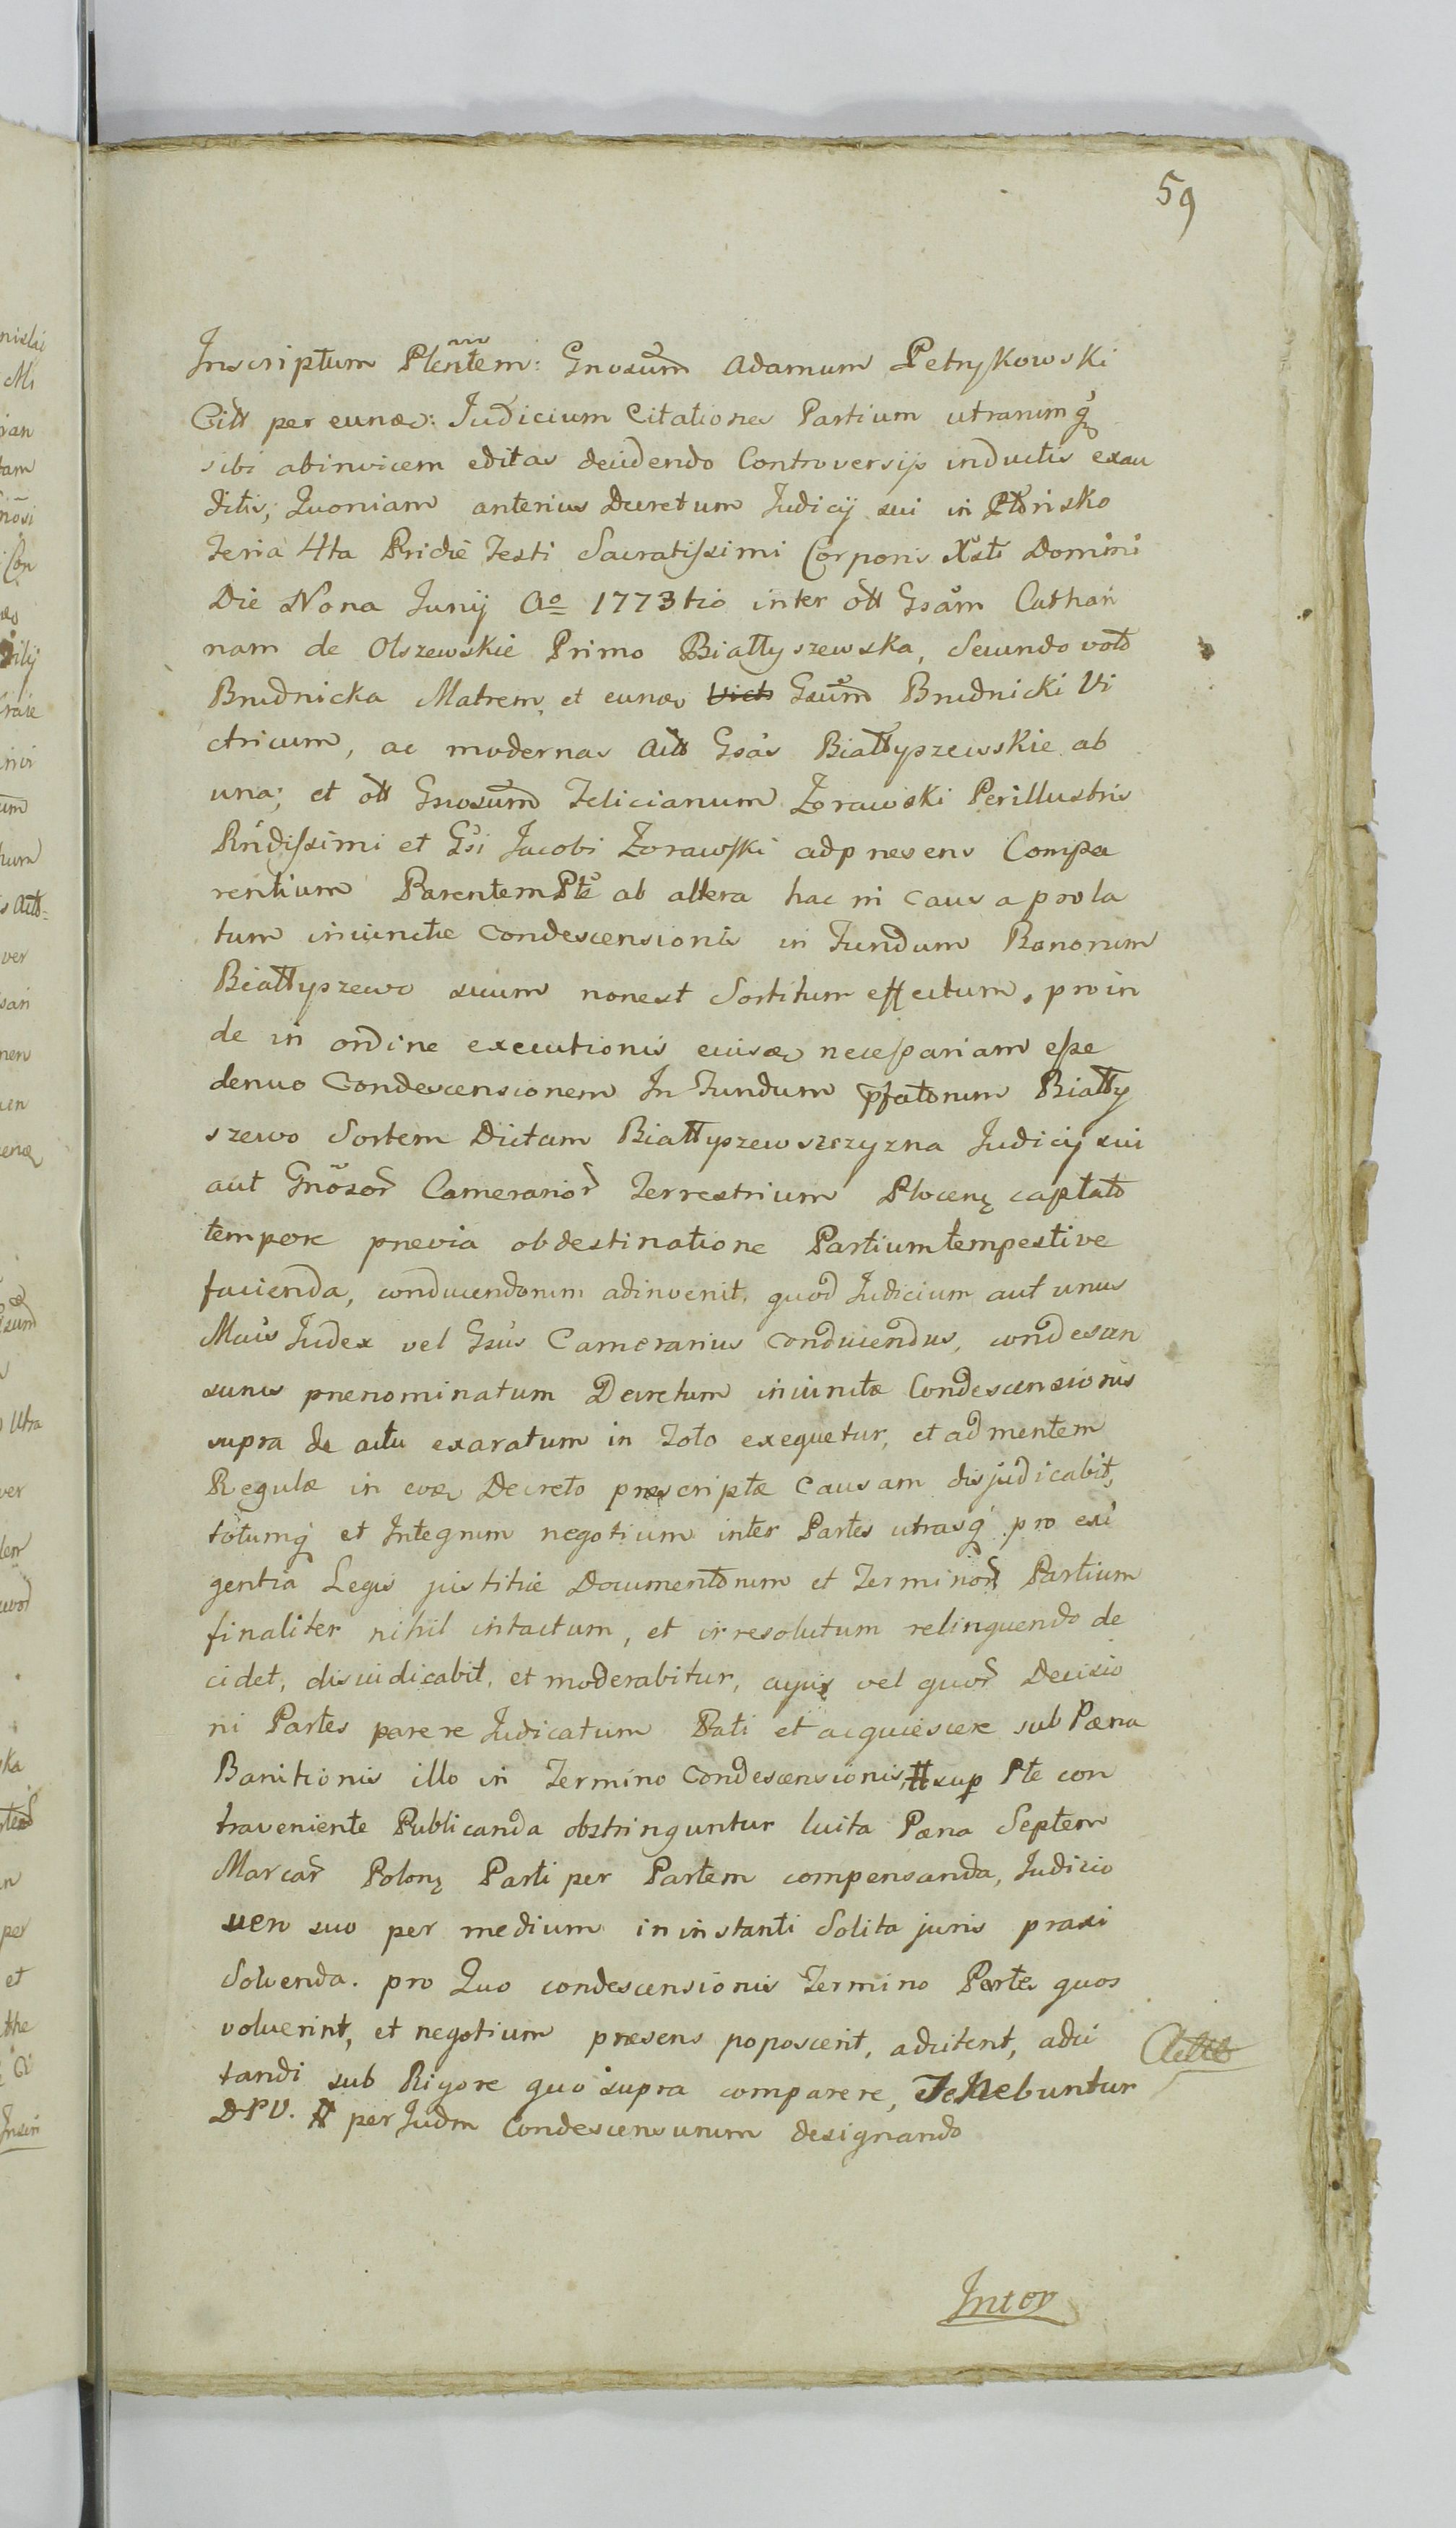 59
Inscriptum Plentem: Gnosum Adamum Petrykowski
Citt per eundӕ: Judicium Citationes Partium utrarumq̃
sibi abinvicem editas decidendo Controversijs inductis exau
ditis; Quoniam anterius Decretum Judicij sui in Płońsko
Feria 4ta Pridie Festi Sacratissimi Corporis Xsti Domini
Die Nona Junij Ao 1773tio inter ott Gsam Cathari
nam de Olszewskie Primo Białłyszewska, Secundo voto
Brudnicka Matrem, et eund Gsum Brudnicki Vi
ctricum, ac modernas Actt Gsas Białłyszewskie ab
una; et ott Gnosum Felicianum Zorawski Perillustris
Rndissimi et Gsi Jacobi Zorawski adpresens Compa
rentium Parentem Pte ab altera hac in causa prola
tum iniunctæ condescensionis in Fundum Bonorum
Białłyszewo suum nonest Sortitum effectum, proin
de in ordine executionis eiusd necessariam esse
denuo Condescensionem In Fundum pfatorum Białły
szewo Sortem Dictam Białłyszewszczyzna Judicij sui
aut Gnosor Camerarior Terrestrium Plocen captato
tempore prævia obdestinatione Partium tempestive
facienda, conducendorum adinvenit, quod Judicium aut unus
Mcus Judex vel Gsus Camerarius conducendus, condescen
surus prenominatum Decretum iniunctæ Condescensionis
supra de actu exaratum in Toto exequetur, et ad mentem
Regulæ in eod Decreto præscriptæ Causam disjudicabit,
totumq et Integrum negotium inter Partes utrasq pro exi
gentia Legis justitiæ Documentorum et Terminor Partium
finaliter nihil intactum, et irresolutum relinquendo de
cidet, disiudicabit, et moderabitur, cujus vel quor Decisio
ni Partes parere Judicatum Pati et acquiescere sub Pæna
Banitionis illo in Termino Condescensionis, # sup Pte con
traveniente Publicanda obstringuntur luita Pæna Septem
Marcar Polon Parti per Partem compensanda, Judicio
vero suo per medium in instanti Solita juris praxi
Solvenda. pro Quo condescensionis Termino Partes quos
voluerint, et negotium præsens poposcerit, adcitent, adci
tandi sub Rigore quo supra comparere, Tenebuntur
DPV. # per Judm Condescensurum designando
Inter